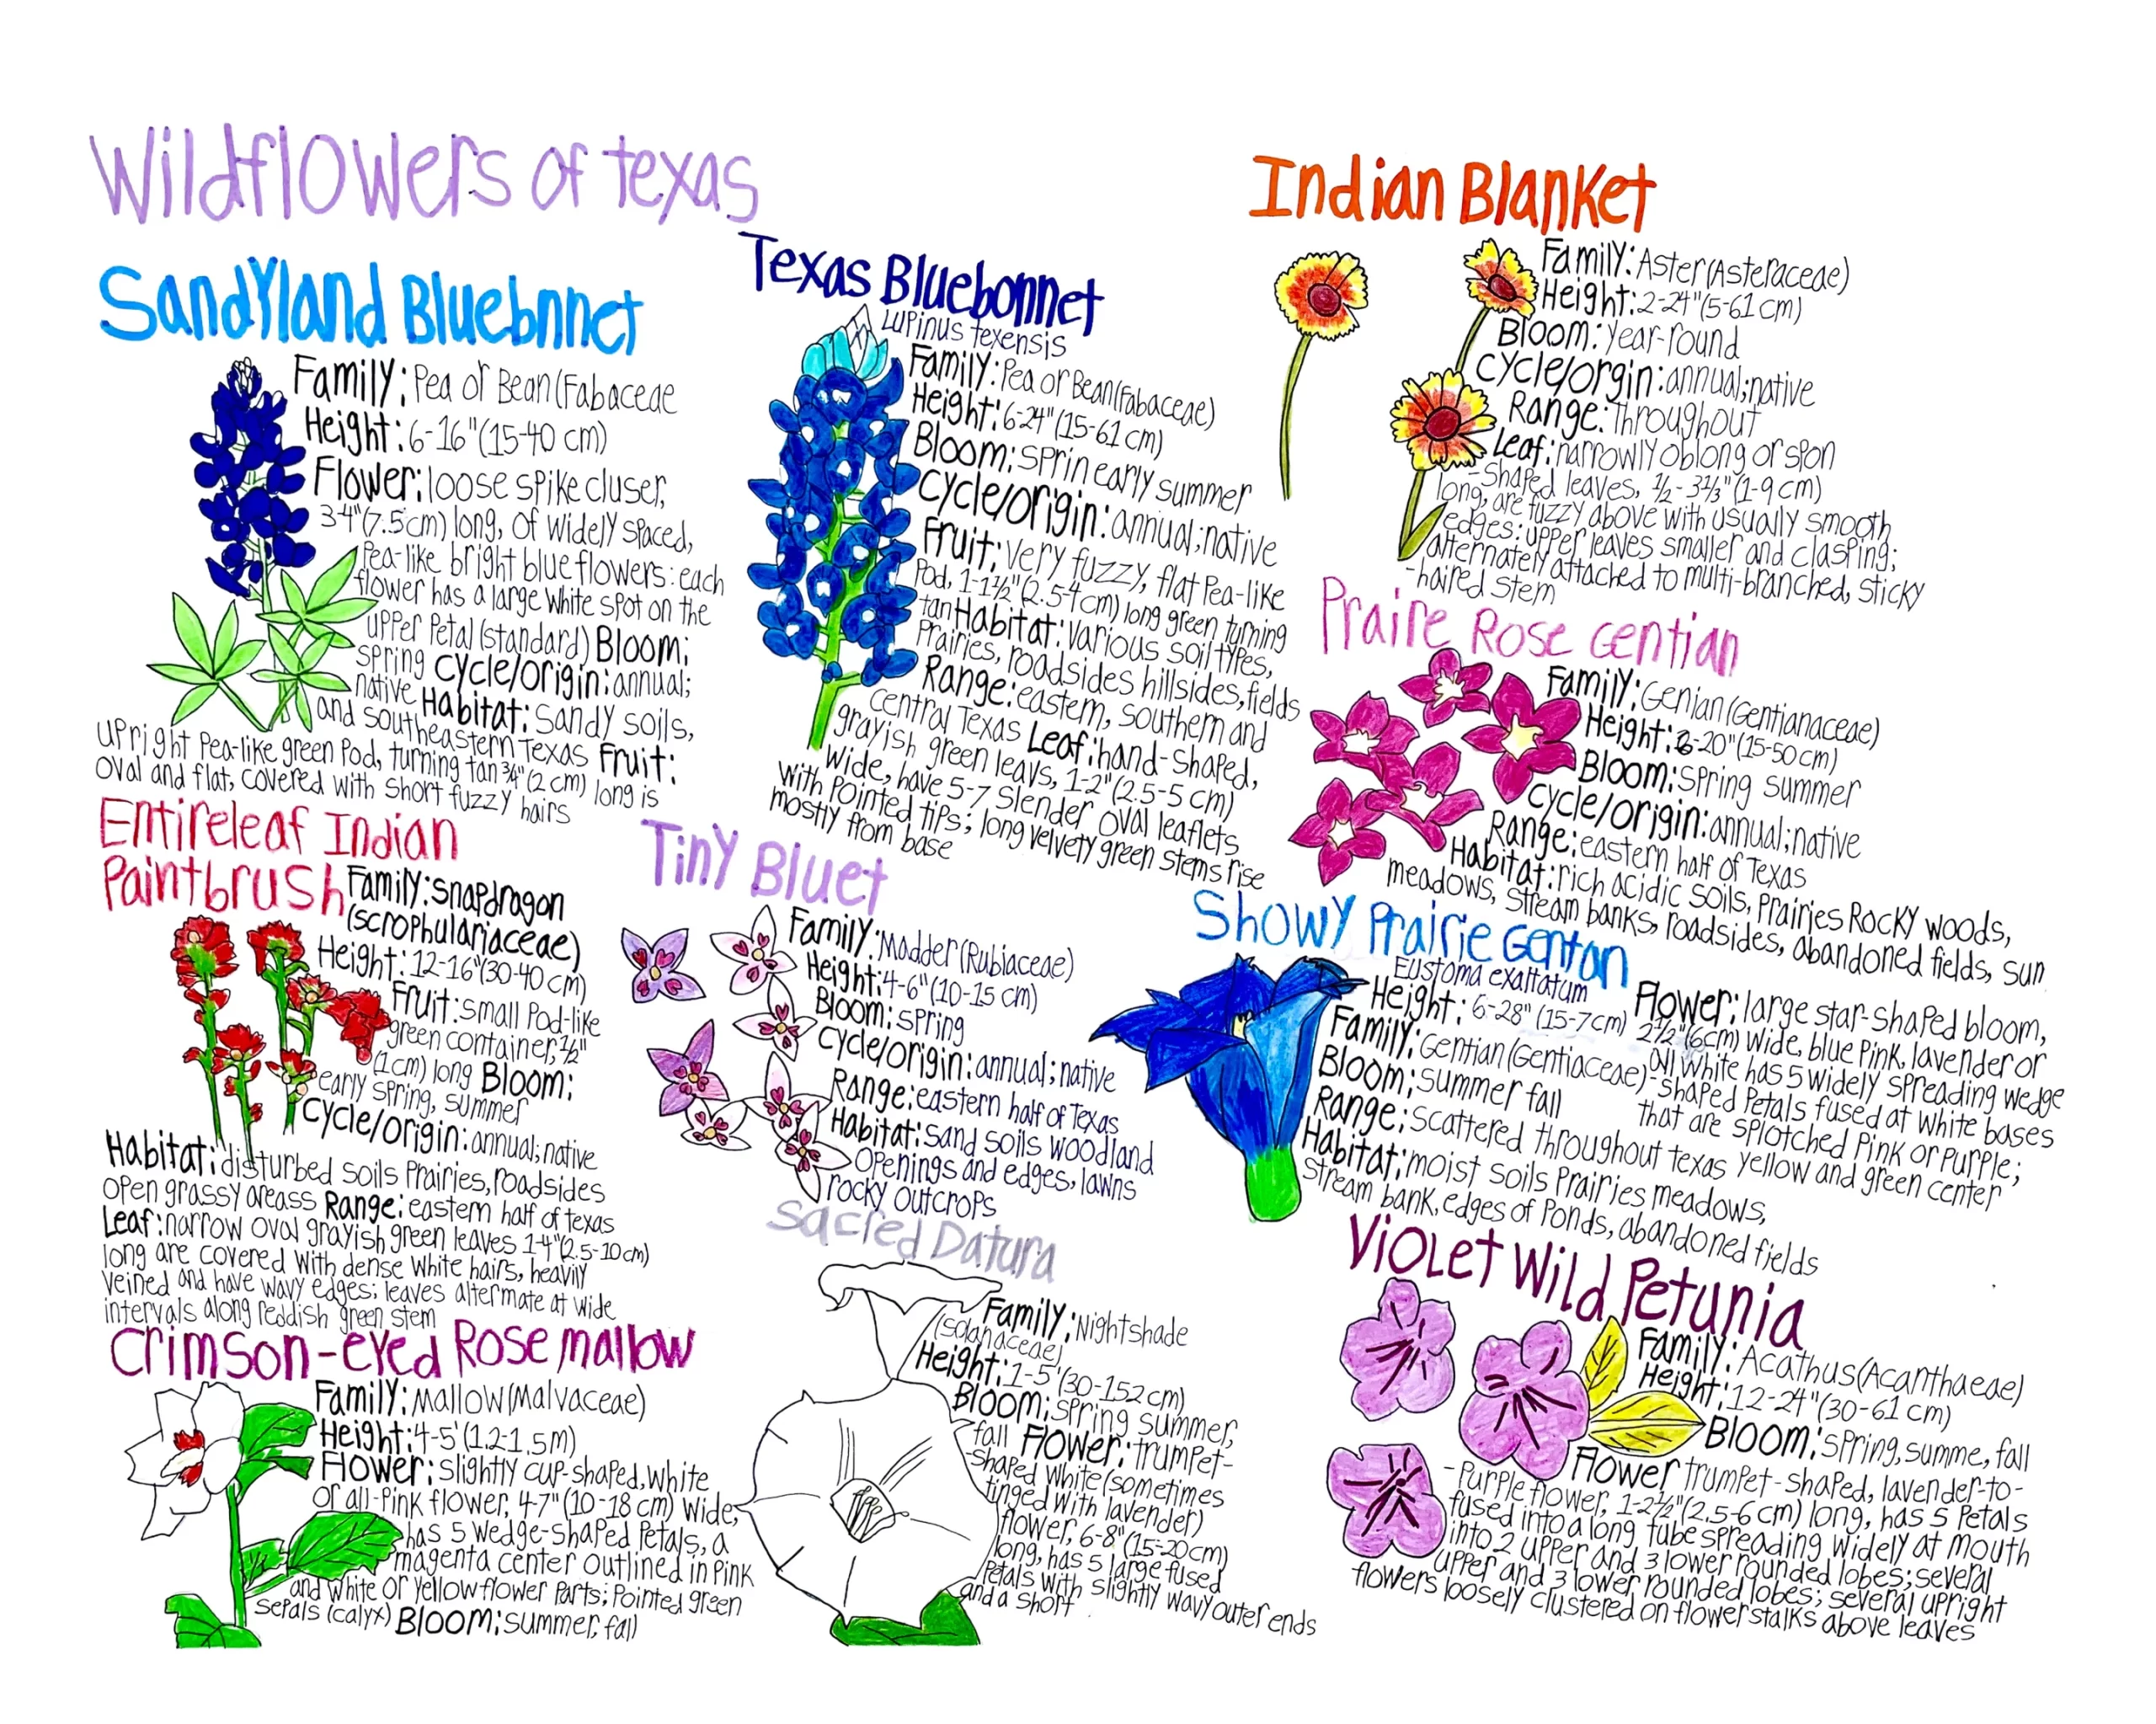 Wildflowers of texas
SandyLand Bluebnnet
Family: Pea or Bean(Fabaceae
Height: 6-16"(15-40 cm)
Flower: loose spike cluser,
3-4"(7.5cm) long, of widely spaced,
Pea-like bright blue flowers: each
flower has a large white spot on the
upper Petal (standard) Bloom:
spring cycle/origin: annual;
native Habitat: sandy soils,
and southeastern Texas Fruit:
upright Pea-like green Pod, turning tan 3/4" (2 cm) long is
oval and flat, covered with short fuzzy hairs
Texas Bluebonnet
Lupinus texensis
Family: Pea or Bean(Fabaceae)
Height: 6-24" (15-61 cm)
Bloom: sprin early summer
cycle/origin: annual; native
Fruit: very fuzzy, flat Pea-like
Pod, 1-1½" (2.5-4 cm) long green turning
tan Habitat: various soil types,
Prairies, roadsides hillsides, fields
Range: eastern, southern and
central Texas Leaf: hand-shaped,
grayish green leavs, 1-2" (2.5-5 cm)
wide, have 5-7 slender oval leaflets
with Pointed tips; long velvety green stems rise
mostly from base
Indian Blanket
Family: Aster(Asteraceae)
Height: 2-24" (5-61 cm)
Bloom: year-round
cycle/orgin: annual; native
Range: throughout
Leaf: narrowly oblong or spon
-shaped leaves, ½-3⅓" (1-9 cm)
long, are fuzzy above with usually smooth
edges: upper leaves smaller and clasping;
alternately attached to multi-branched, sticky
-haired stem
Praire Rose Gentian
Family: Genian(Gentianaceae)
Height: 6-20" (15-50cm)
Bloom: spring summer
cycle/origin: annual; native
Range: eastern half of Texas
Habitat: rich acidic soils, Prairies Rocky woods,
meadows, stream banks, roadsides, abandoned fields, sun
Entireleaf Indian
Paintbrush
Family: snapdragon
(scrophulariaceae)
Height: 12-16" (30-40 cm)
Fruit: small Pod-like
green container, ½"
(1cm) long Bloom:
early spring, summer
cycle/origin: annual; native
Habitat: disturbed soils Prairies, roadsides
open grassy areass Range: eastern half of texas
Leaf: narrow oval grayish green leaves 1-4" (2.5-10cm)
long are covered with dense white hairs, heavily
veined and have wavy edges; leaves altermate at wide
intervals along reddish green stem
Tiny Bluet
Family: Madder (Rubiaceae)
Height: 4-6" (10-15 cm)
Bloom: spring
cycle/origin: annual; native
Range: eastern half of Texas
Habitat: sand soils woodland
openings and edges, lawns
rocky outcrops
Showy Prairie Gentan
Eustoma exaltatum
Height: 6-28" (15-7cm)
Family: Gentian (Gentiaceae)
Bloom: summer fall
Range: scattered throughout texas
Habitat: moist soils Prairies meadows,
stream bank, edges of Ponds, abandoned fields
Flower: large star-shaped bloom,
2½" (6cm) wide, blue Pink, lavender or
all white has 5 widely spreading wedge
-shaped Petals fused at white bases
that are splotched Pink or Purple;
yellow and green center
Crimson-eyed Rose mallow
Family: mallow(Malvaceae)
Height: 4-5' (1.2-1.5m)
Flower: slightly cup-shaped, white
or all-Pink flower, 4-7" (10-18 cm) wide,
has 5 wedge-shaped Petals, a
magenta center outlined in Pink
and white or yellow flower Parts; Pointed green
sepals (calyx) Bloom: summer, fall
Sacred Datura
Family: Nightshade
(solanaceae)
Height: 1-5' (30-152 cm)
Bloom: spring summer,
fall Flower: trumpet-
shaped white (sometimes
tinged with lavender)
flower, 6-8" (15-20cm)
long, has 5 large fused
Petals with slightly wavy outer ends
and a short
Violet Wild Petunia
Family: Acathus(Acanthaeae)
Height: 12-24" (30-61 cm)
Bloom: spring, summe, fall
Flower trumpet-shaped, lavender-to-
-Purple flower, 1-2½" (2.5-6 cm) long, has 5 Petals
fused into a long tube spreading widely at mouth
into 2 upper and 3 lower rounded lobes; several
upper and 3 lower rounded lobes; several upright
flowers loosely clustered on flowerstalks above leaves